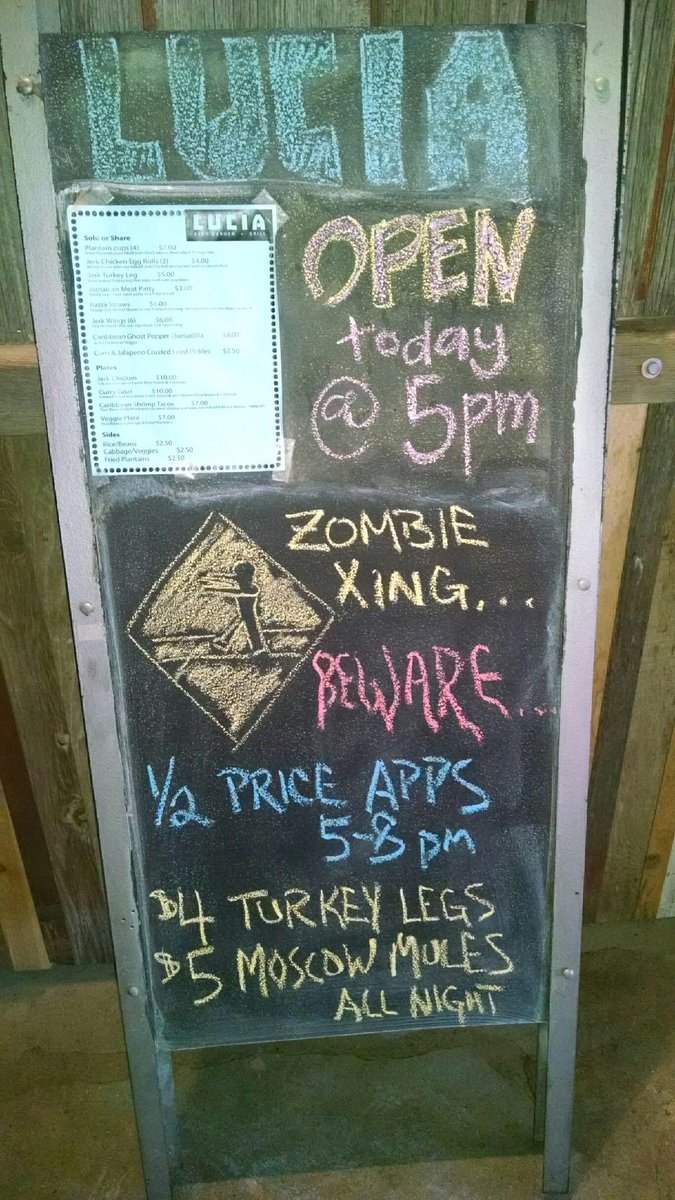 LUCIA
LUCIA
Solo or Share
Plantain cups (4) $7.00
Jerk Chicken Egg Rolls (2) $4.00
Jerk Turkey Leg $5.00
Jamaican Meat Patty $3.00
Rasta Straws $6.00
Jerk Wings (6) $6.00
Caribbean Ghost Pepper Quesadilla $8.00
Corn & Jalapeno Crusted Fried Pickles $7.50
Plates
Jerk Chicken $10.00
Curry Goat $10.00
Caribbean Shrimp Tacos $7.00
Veggie Plate $7.00
Sides
Rice/Beans $2.50
Cabbage/Veggies $2.50
Fried Plantains $2.50
OPEN
today
@ 5pm
ZOMBIE
XING...
BEWARE...
1/2 PRICE APPS
5-8 pm
$4 TURKEY LEGS
$5 MOSCOW MULES
ALL NIGHT